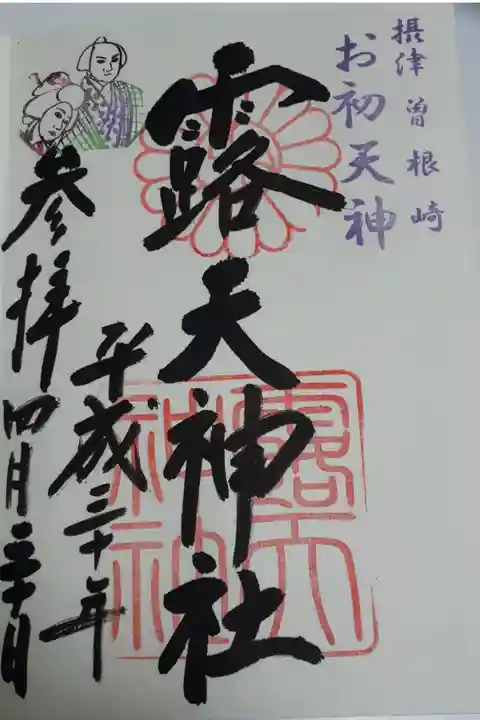 摂津 曽根崎
お初天神
露天神社
平成三十年
参拝 四月三十日
露天神社